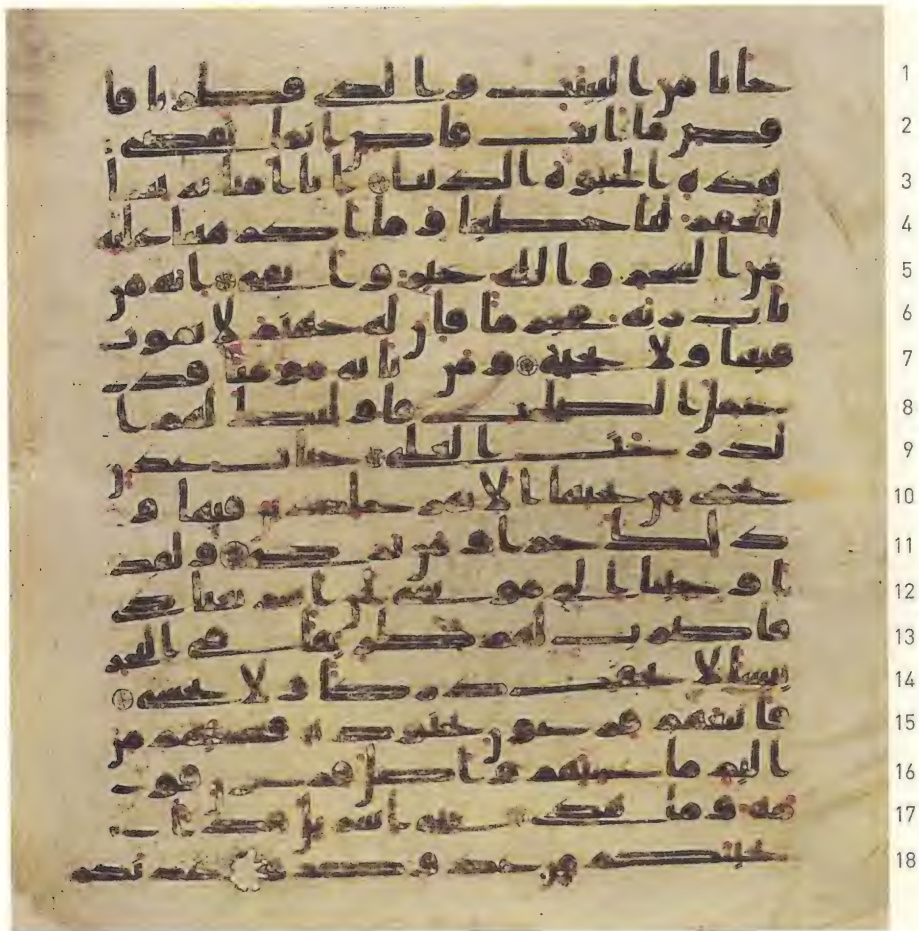 1 جانا من البينت والذي فطرنا فا
2 قض ما انت قاض انما تقضي
3 هذه الحيوة الدنيا انا امنا بربنا
4 ليغفر لنا خطينا وما اكرهتنا عليه
5 من السحر والله خير وابقى انه من
6 يات ربه مجرما فان له جهنم لا يموت
7 فيها ولا يحيى ومن ياته مومنا قد
8 عمل الصلحت فاوليك لهم ا
9 لدرجت العلى جنات عدن
10 تجري من تحتها الانهر خلدين فيها و
11 ذلك جزاوا من تزكى ولقد
12 اوحينا الى موسى ان اسر بعبادي
13 فاضرب لهم طريقا في البحر
14 يبسا لا تخف دركا ولا تخشى
15 فاتبعهم فرعون بجنوده فغشيهم من
16 اليم ما غشيهم واضل فرعون قو
17 مه وما هدى يبني اسريل قد ا
18 نجينكم من عدوكم وعدنكم